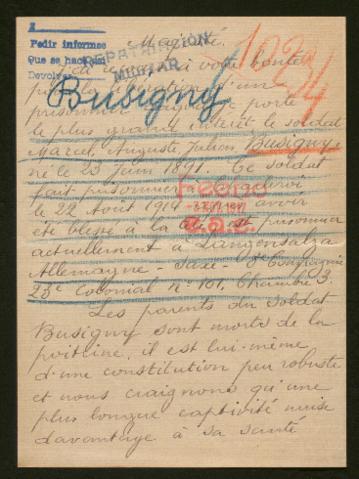 A
Pedir informes
Que se hace
Devolver
REPATRIACION
MILITAR
1024
Busigny
Majesté,
votre bonté
d'un
prisonnier porte
le plus grand intérêt le soldat
Marcel, Auguste, Julien Busigny
né le 23 Juin 1891. Ce soldat
fait prisonnier
le 22 Août 1914 avoir
été blessé à la est prisonnier
actuellement à Langensalza
Allemagne - Saxe - Compagnie
23e Colonial No 101, Chambre 3.
Les parents du soldat
Busigny sont morts de la
poitrine, il est lui-même
d'une constitution peu robuste
et nous craignons qu'une
plus longue captivité nuise
davantage à sa santé